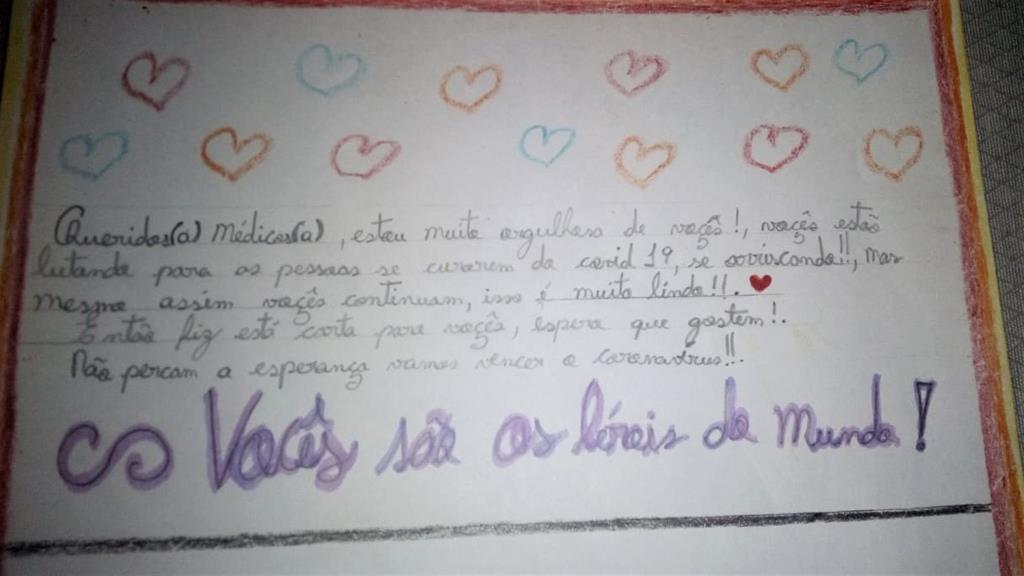 Queridos(a) Médicos(a), estou muito orgulhoso de voçês!, voçês estão
lutando para as pessoas se curarem da covid 19, se arriscando!!, mas
mesmo assim voçês continuam, isso é muito lindo!!.
Então fiz está carta para voçês, espero que gostem!.
Não percam a esperança vamos vencer o coronavírus!!.
Vocês são os héroís do Mundo!